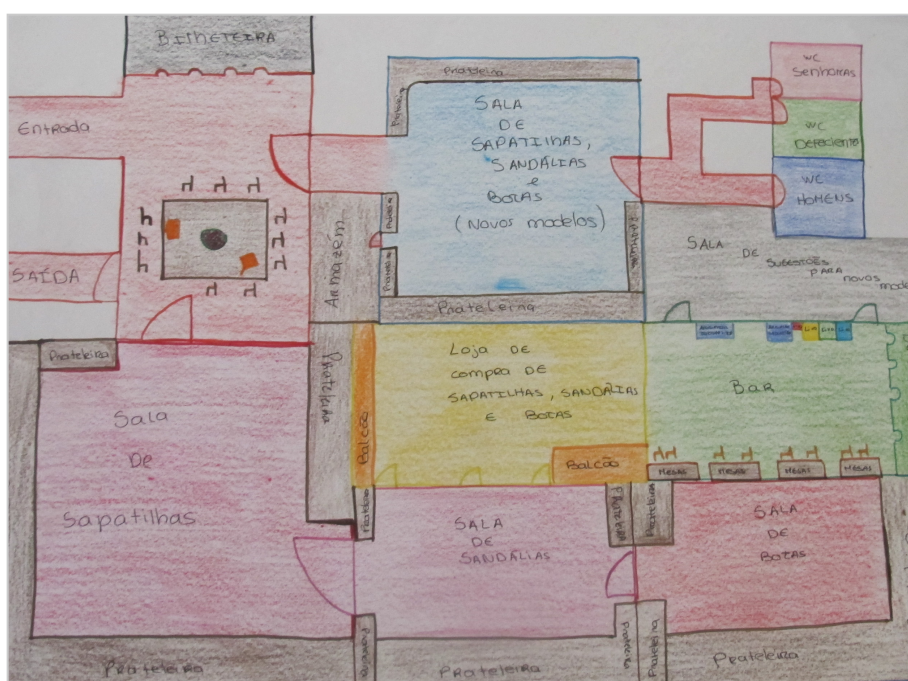 BILHETEIRA
Entrada
SAÍDA
Prateleira
Prateleira
SALA
DE
SAPATILHAS,
SANDÁLIAS
e
BOTAS
(Novos modelos)
Prateleira
Prateleira
Prateleira
Prateleira
Armazém
WC
Senhoras
WC
DEFICIENTE
WC
HOMENS
SALA
DE
SUGESTÕES
PARA
novos
mode
Prateleira
Sala
De
Sapatilhas
Prateleira
Prateleira
Balcão
Loja DE
compra DE
SAPATILHAS, SANDÁLIAS
E BOTAS
Balcão
BAR
Lixo
Lixo
Lixo
MESAS
MESAS
MESAS
MESAS
Prateleira
SALA
DE
SANDÁLIAS
Prateleira
Prateleira
Prateleira
Prateleira
Prateleira
SALA
DE
BOTAS
Prateleira
Prateleira
Prateleira